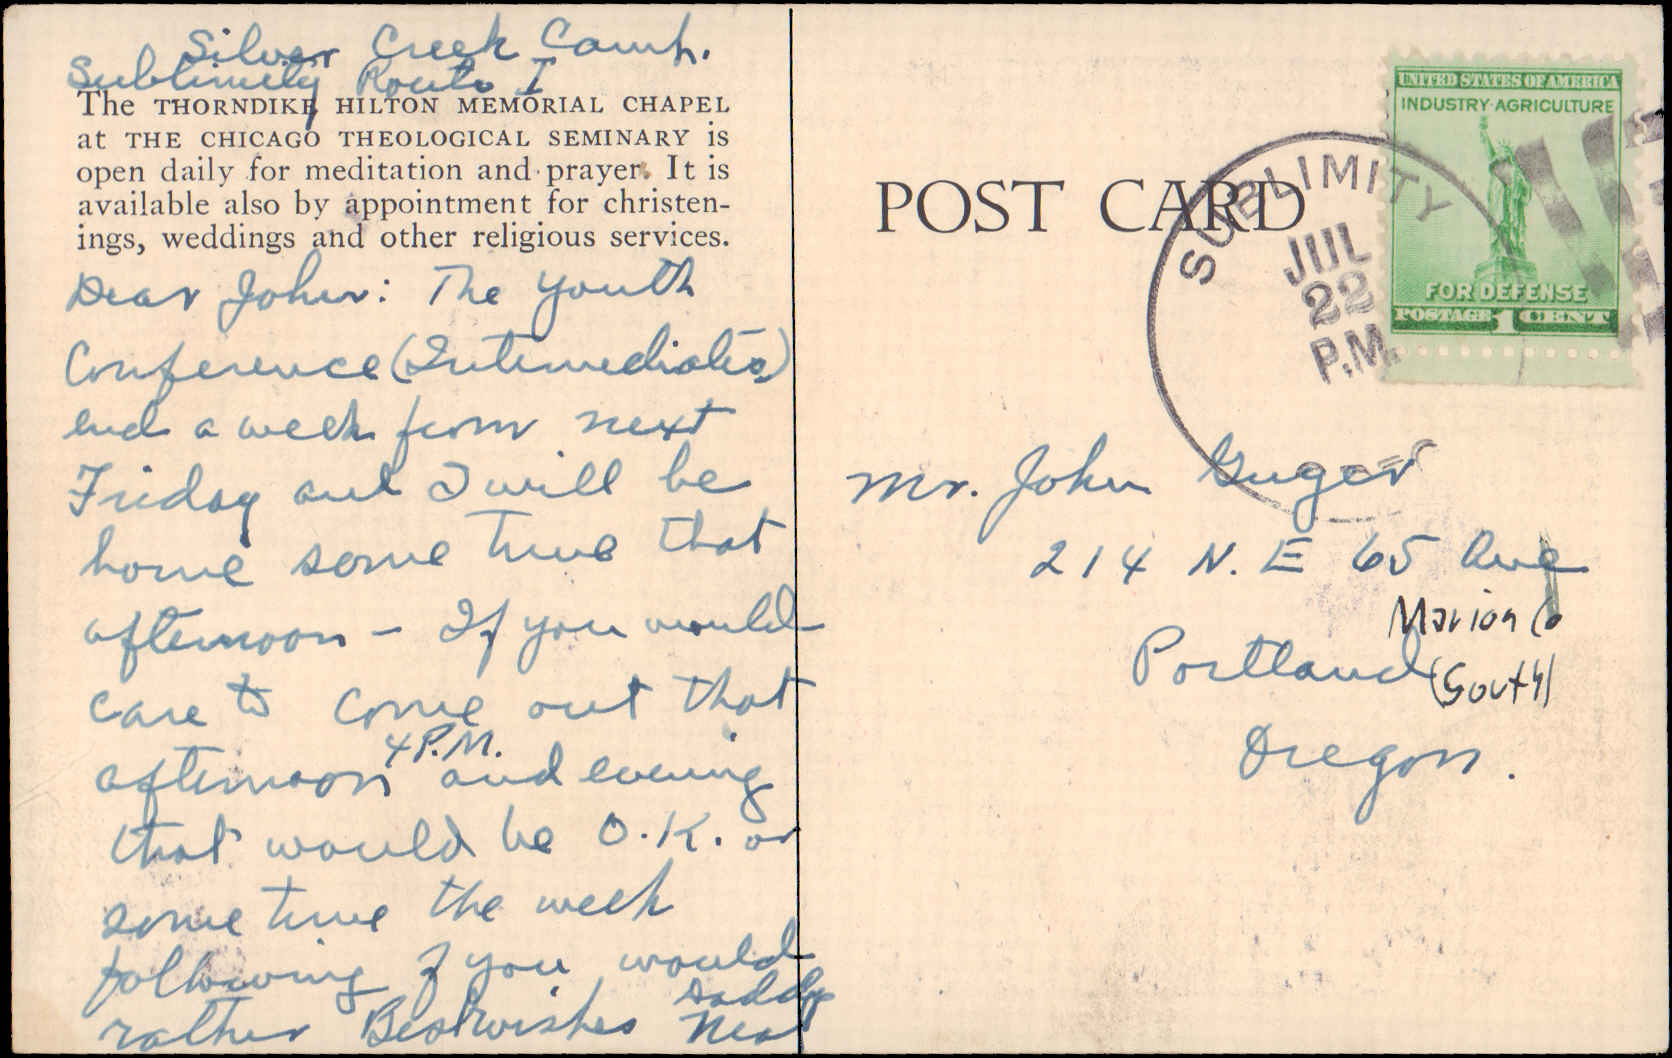 Silver Creek Camp.
Sublimity Route I
The THORNDIKE HILTON MEMORIAL CHAPEL
at THE CHICAGO THEOLOGICAL SEMINARY is
open daily for meditation and prayer. It is
available also by appointment for christen-
ings, weddings and other religious services.
Dear John: The Youth
Conference (Intermediates)
end a week from next
Friday and I will be
home some time that
afternoon – If you would
care to come out that
afternoon 4 P.M. and evening
that would be O.K. or
some time the week
following if you would
rather Best wishes
POST CARD
SUBLIMITY
JUL
22
P.M.
ORE
UNITED STATES OF AMERICA
INDUSTRY·AGRICULTURE
FOR DEFENSE
POSTAGE 1 CENT
Mr. John Guger
214 N.E 65 Ave
Marion Co
Portland (South)
Oregon.